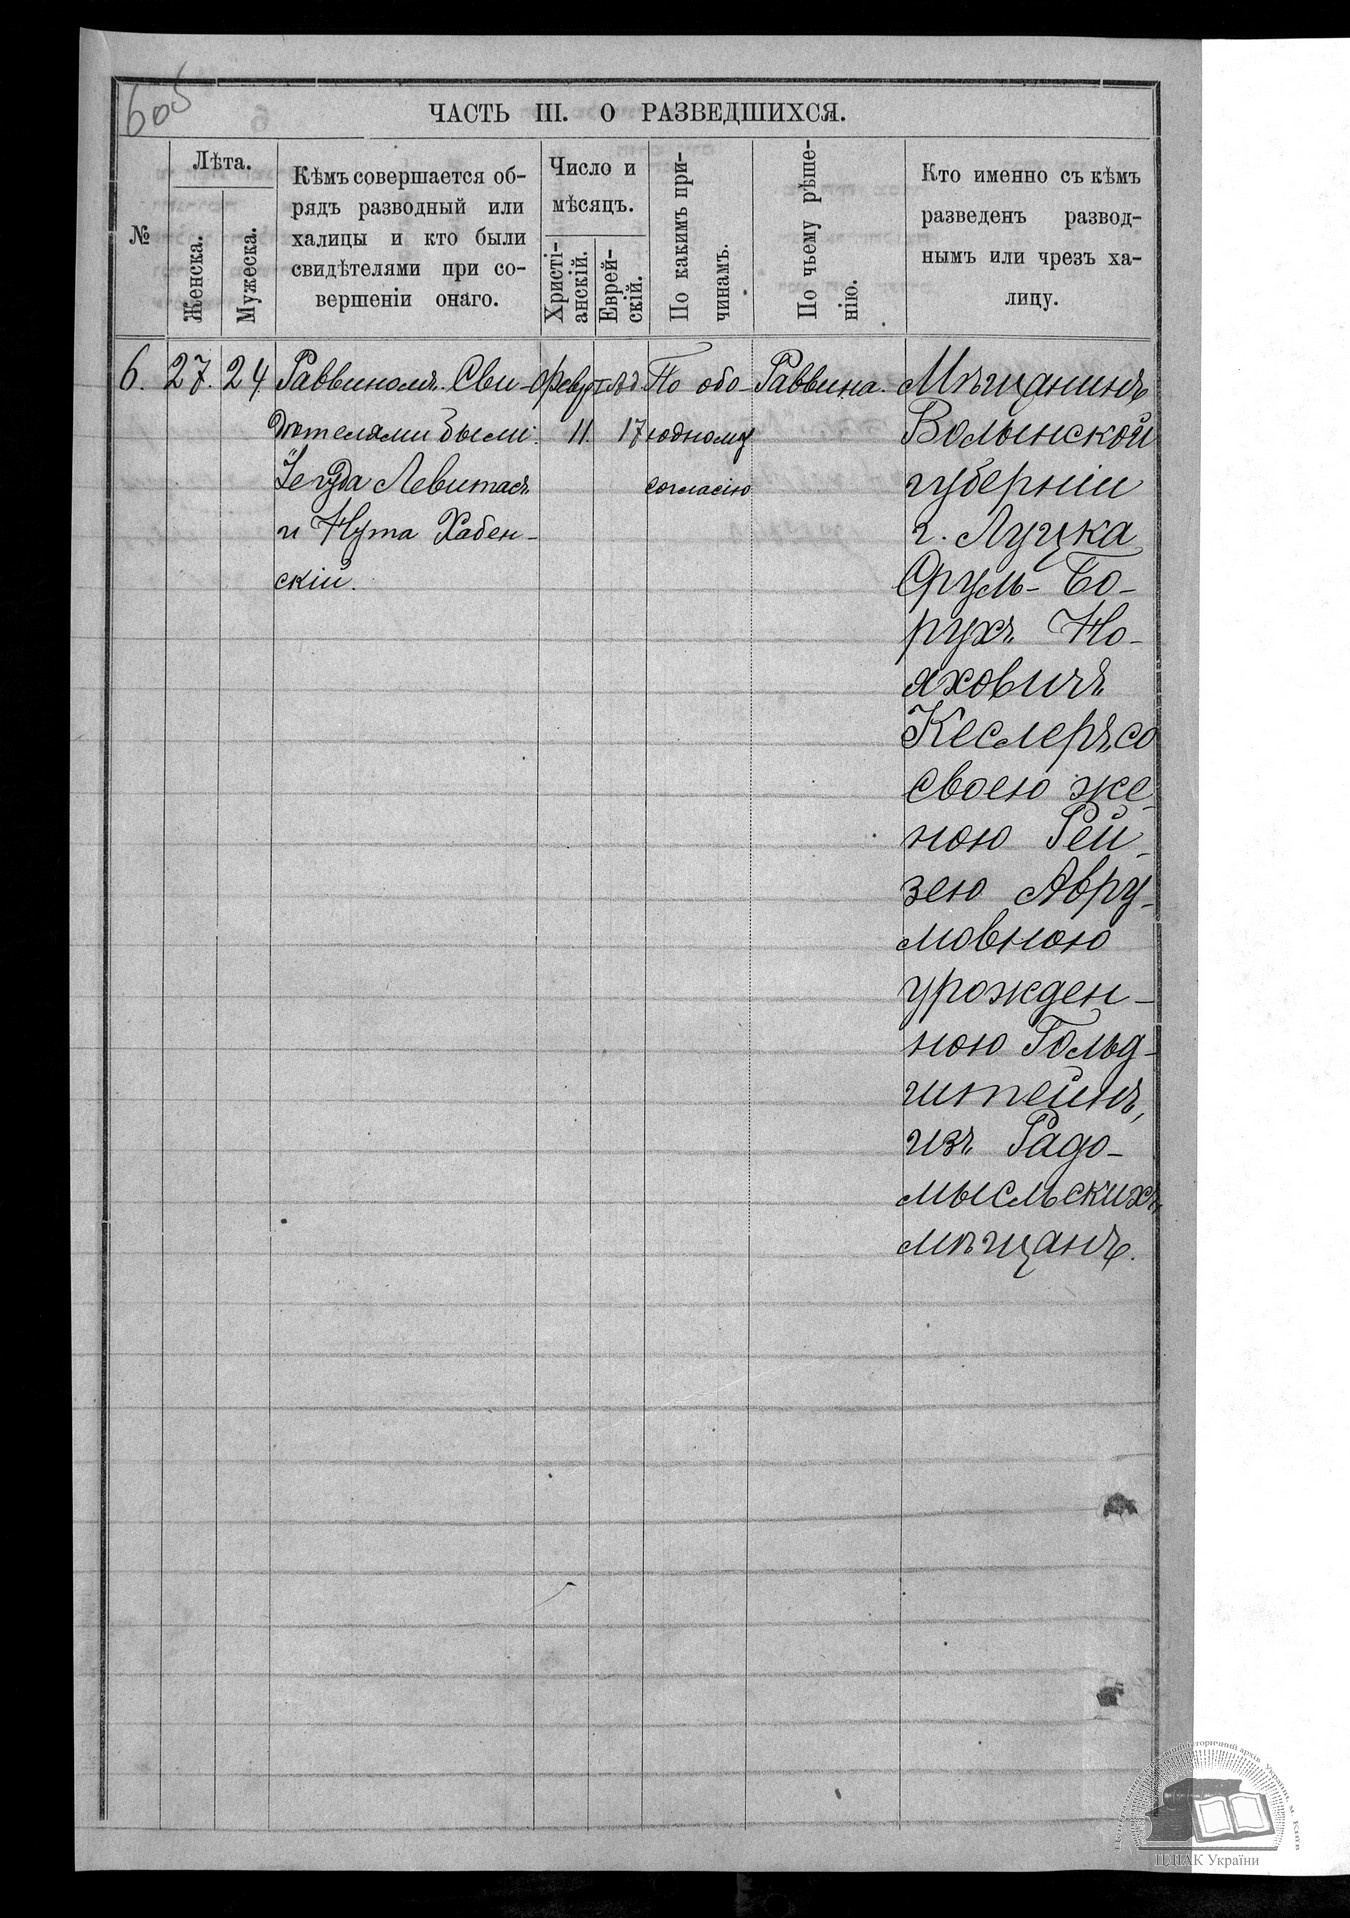 605
ЧАСТЬ III. О РАЗВЕДШИХСЯ.
№
Лѣта.
Женска.
Мужеска.
Кѣмъ совершается об-
рядъ разводный или
халицы и кто были
свидѣтелями при со-
вершеніи онаго.
Число и
мѣсяцъ.
Христі-
анскій.
Еврей-
скій.
По какимъ при-
чинамъ.
По чьему рѣше-
нію.
Кто именно съ кѣмъ
разведенъ развод-
нымъ или чрезъ ха-
лицу.
6.
27.
24
Раввиномъ. Сви-
дѣтелями были:
Іегуда Левитасъ
и Нута Хабен-
скій.
Февр
11.
17
По обо-
юдному
согласію
Раввина.
Мѣщанинъ
Волынской
губерніи
г. Луцка
Срулъ-Бо-
рухъ Но-
яховичъ
Кеслеръ, со
своею же-
ною Рей-
зею Авру-
мовною
урожден-
ною Гольд-
штейнъ,
изъ Радо-
мысльскихъ
мѣщанъ.
ЦДІАК України